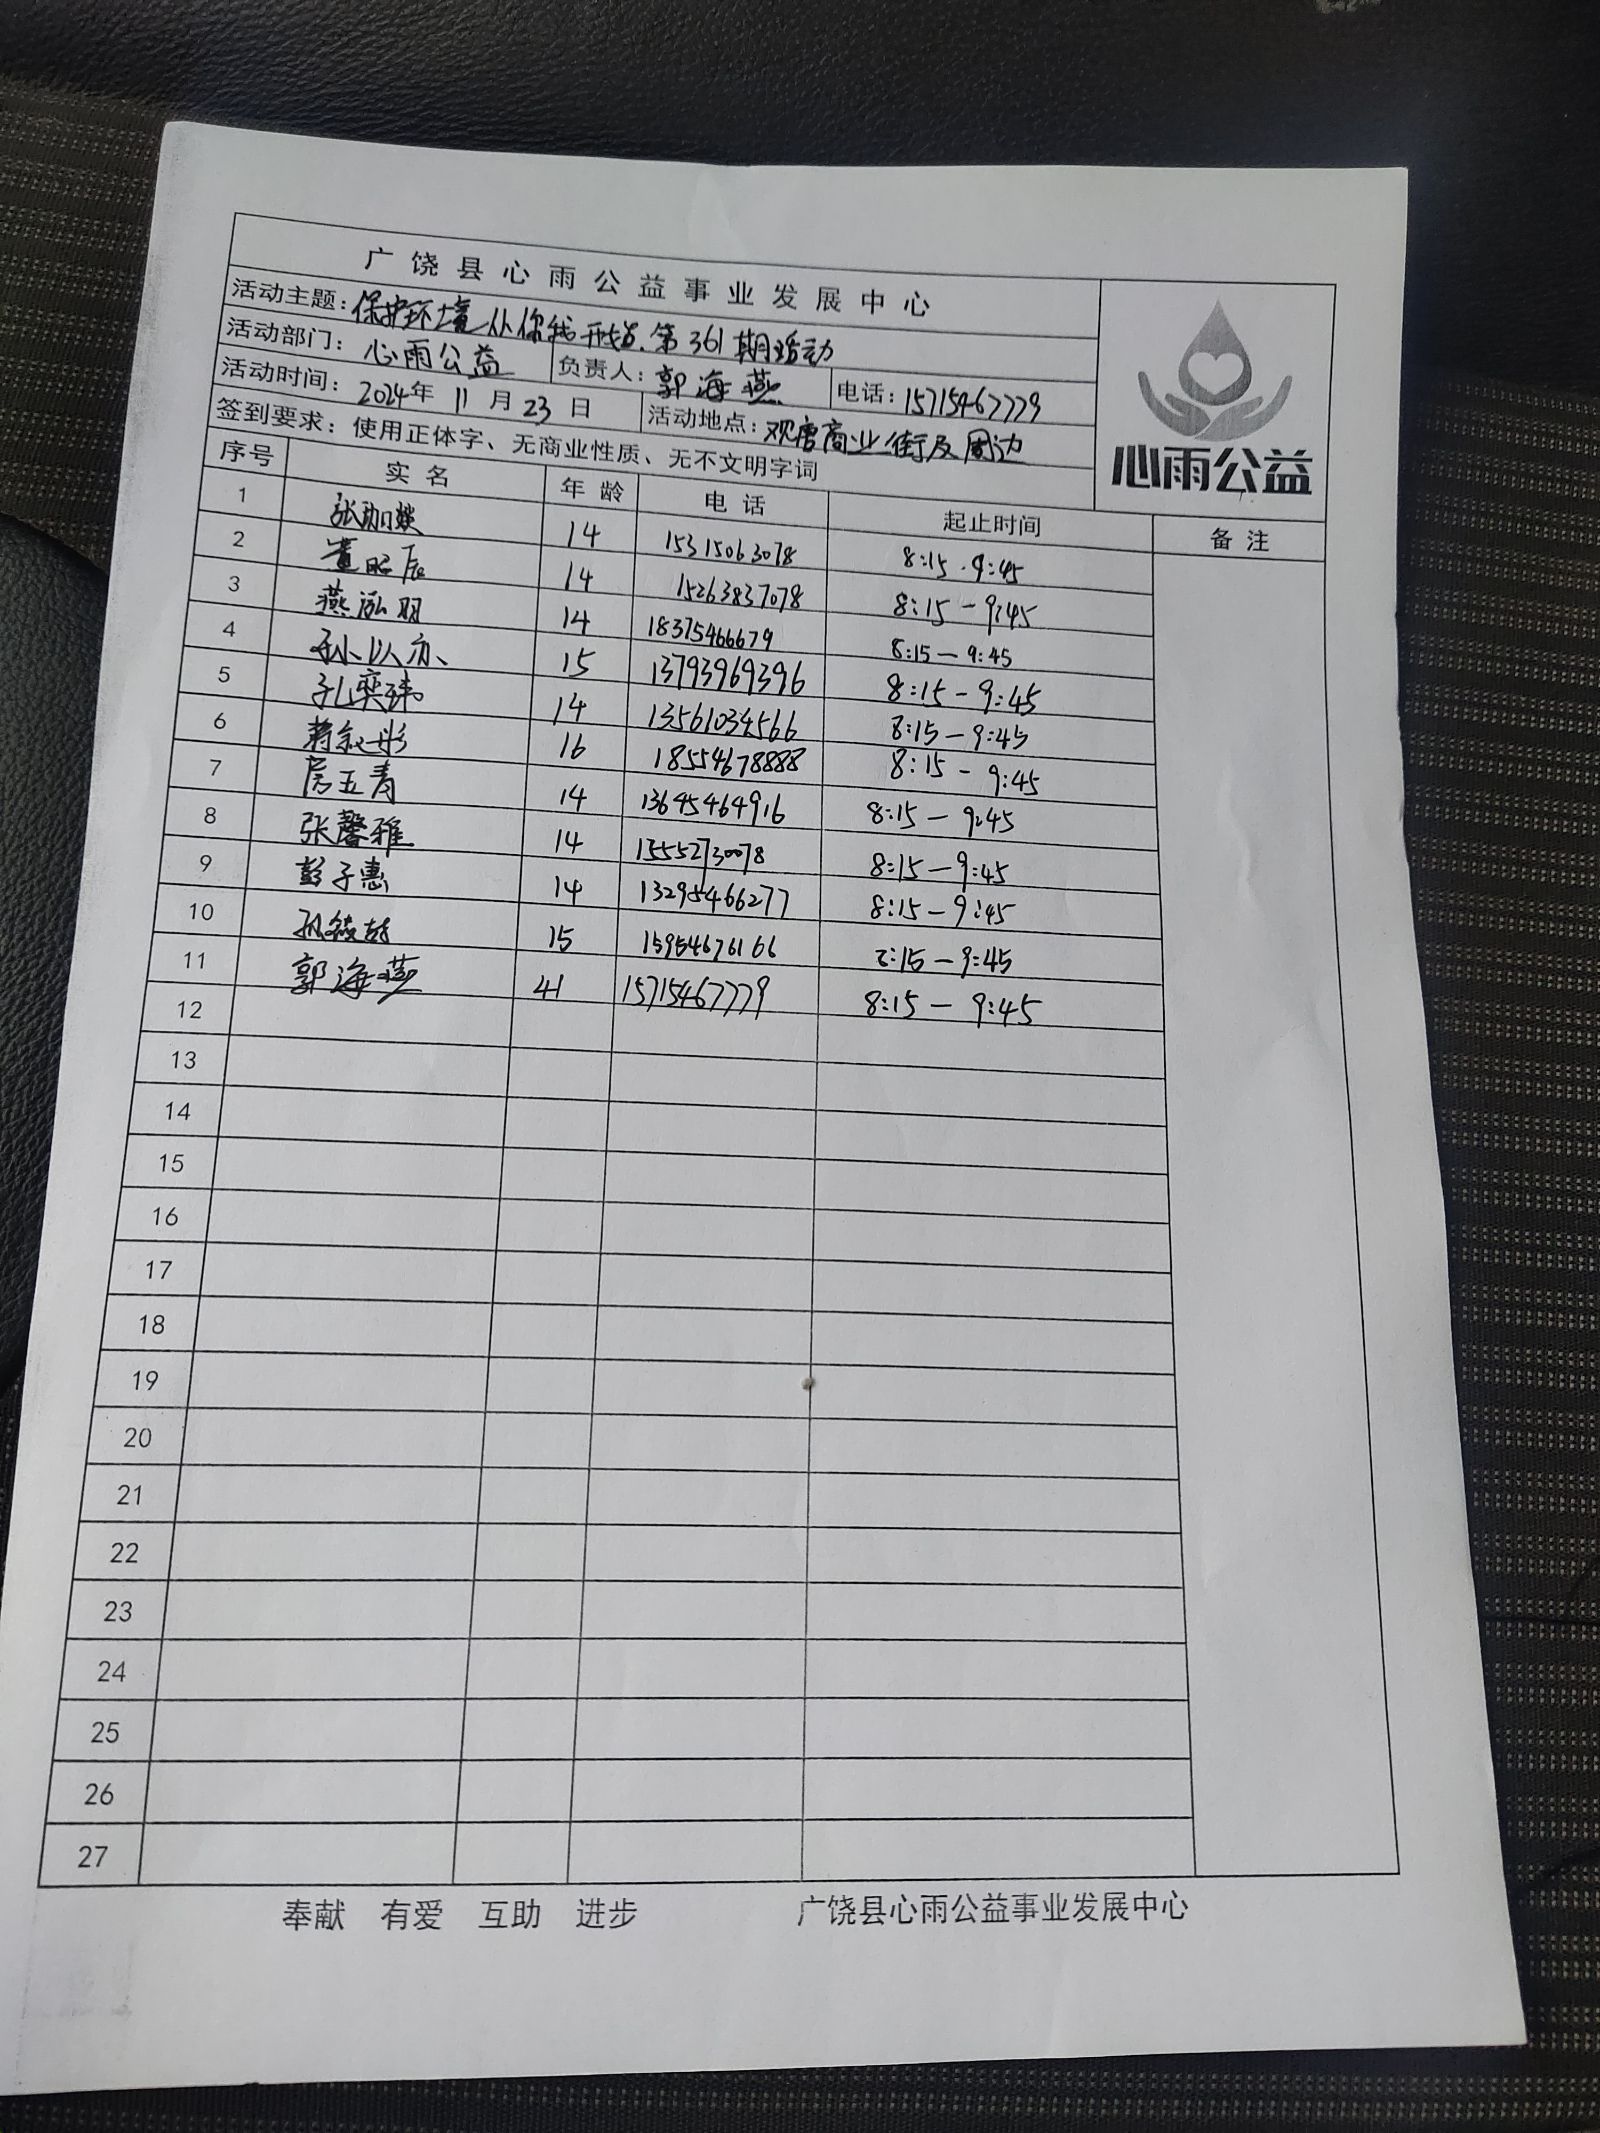 广饶县心雨公益事业发展中心
活动主题：保护环境从你我开始.第361期活动
活动部门：心雨公益 负责人：郭海燕 电话：15715467779
活动时间：2024年11月23日 活动地点：观唐商业街及周边
签到要求：使用正体字、无商业性质、无不文明字词
心雨公益
序号 实名 年龄 电话 起止时间 备注
1 张珈 14 15315063078 8:15-9:45
2 董昭辰 14 15263837078 8:15-9:45
3 燕泓羽 14 18375466679 8:15-9:45
4 孙以亦 15 13793969396 8:15-9:45
5 孔奕 14 13561034566 8:15-9:45
6 蒋 彤 16 18554678888 8:15-9:45
7 房玉青 14 13645464916 8:15-9:45
8 张馨雅 14 15552730078 8:15-9:45
9 彭子惠 14 13295466277 8:15-9:45
10 孙 15 15954676166 8:15-9:45
11 郭海燕 41 15715467779 8:15-9:45
12
13
14
15
16
17
18
19
20
21
22
23
24
25
26
27
奉献 有爱 互助 进步 广饶县心雨公益事业发展中心